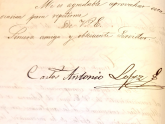 Me es agradable aprovechar
para repetirme
de V. E.
Sincero amigo y obediente Servidor
Carlos Antonio Lopez